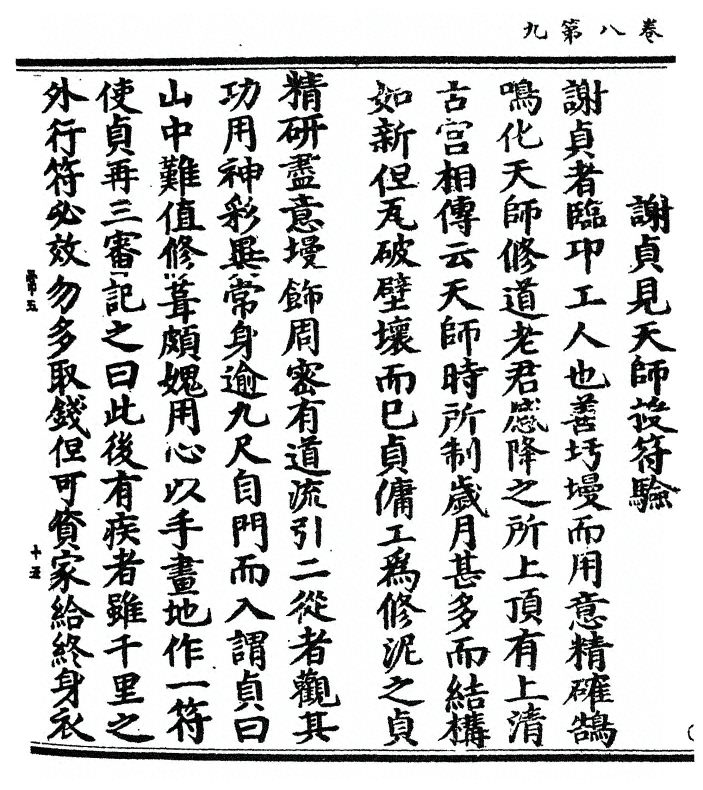 卷八第九
謝貞見天師授符驗
謝貞者臨卭工人也善圬墁而用意精確鵠
鳴化天師修道老君感降之所上頂有上清
古宫相傳云天師時所制歲月甚多而結構
如新但瓦破壁壞而巳貞傭工爲修泥之貞
精研盡意墁飾周密有道流引二從者觀其
功用神彩異常身逾九尺自門而入謂貞曰
山中難值修葺頗媿用心以手畫地作一符
使貞再三審記之曰此後有疾者雖千里之
外行符必效勿多取錢但可資家給終身衣
第五
十五